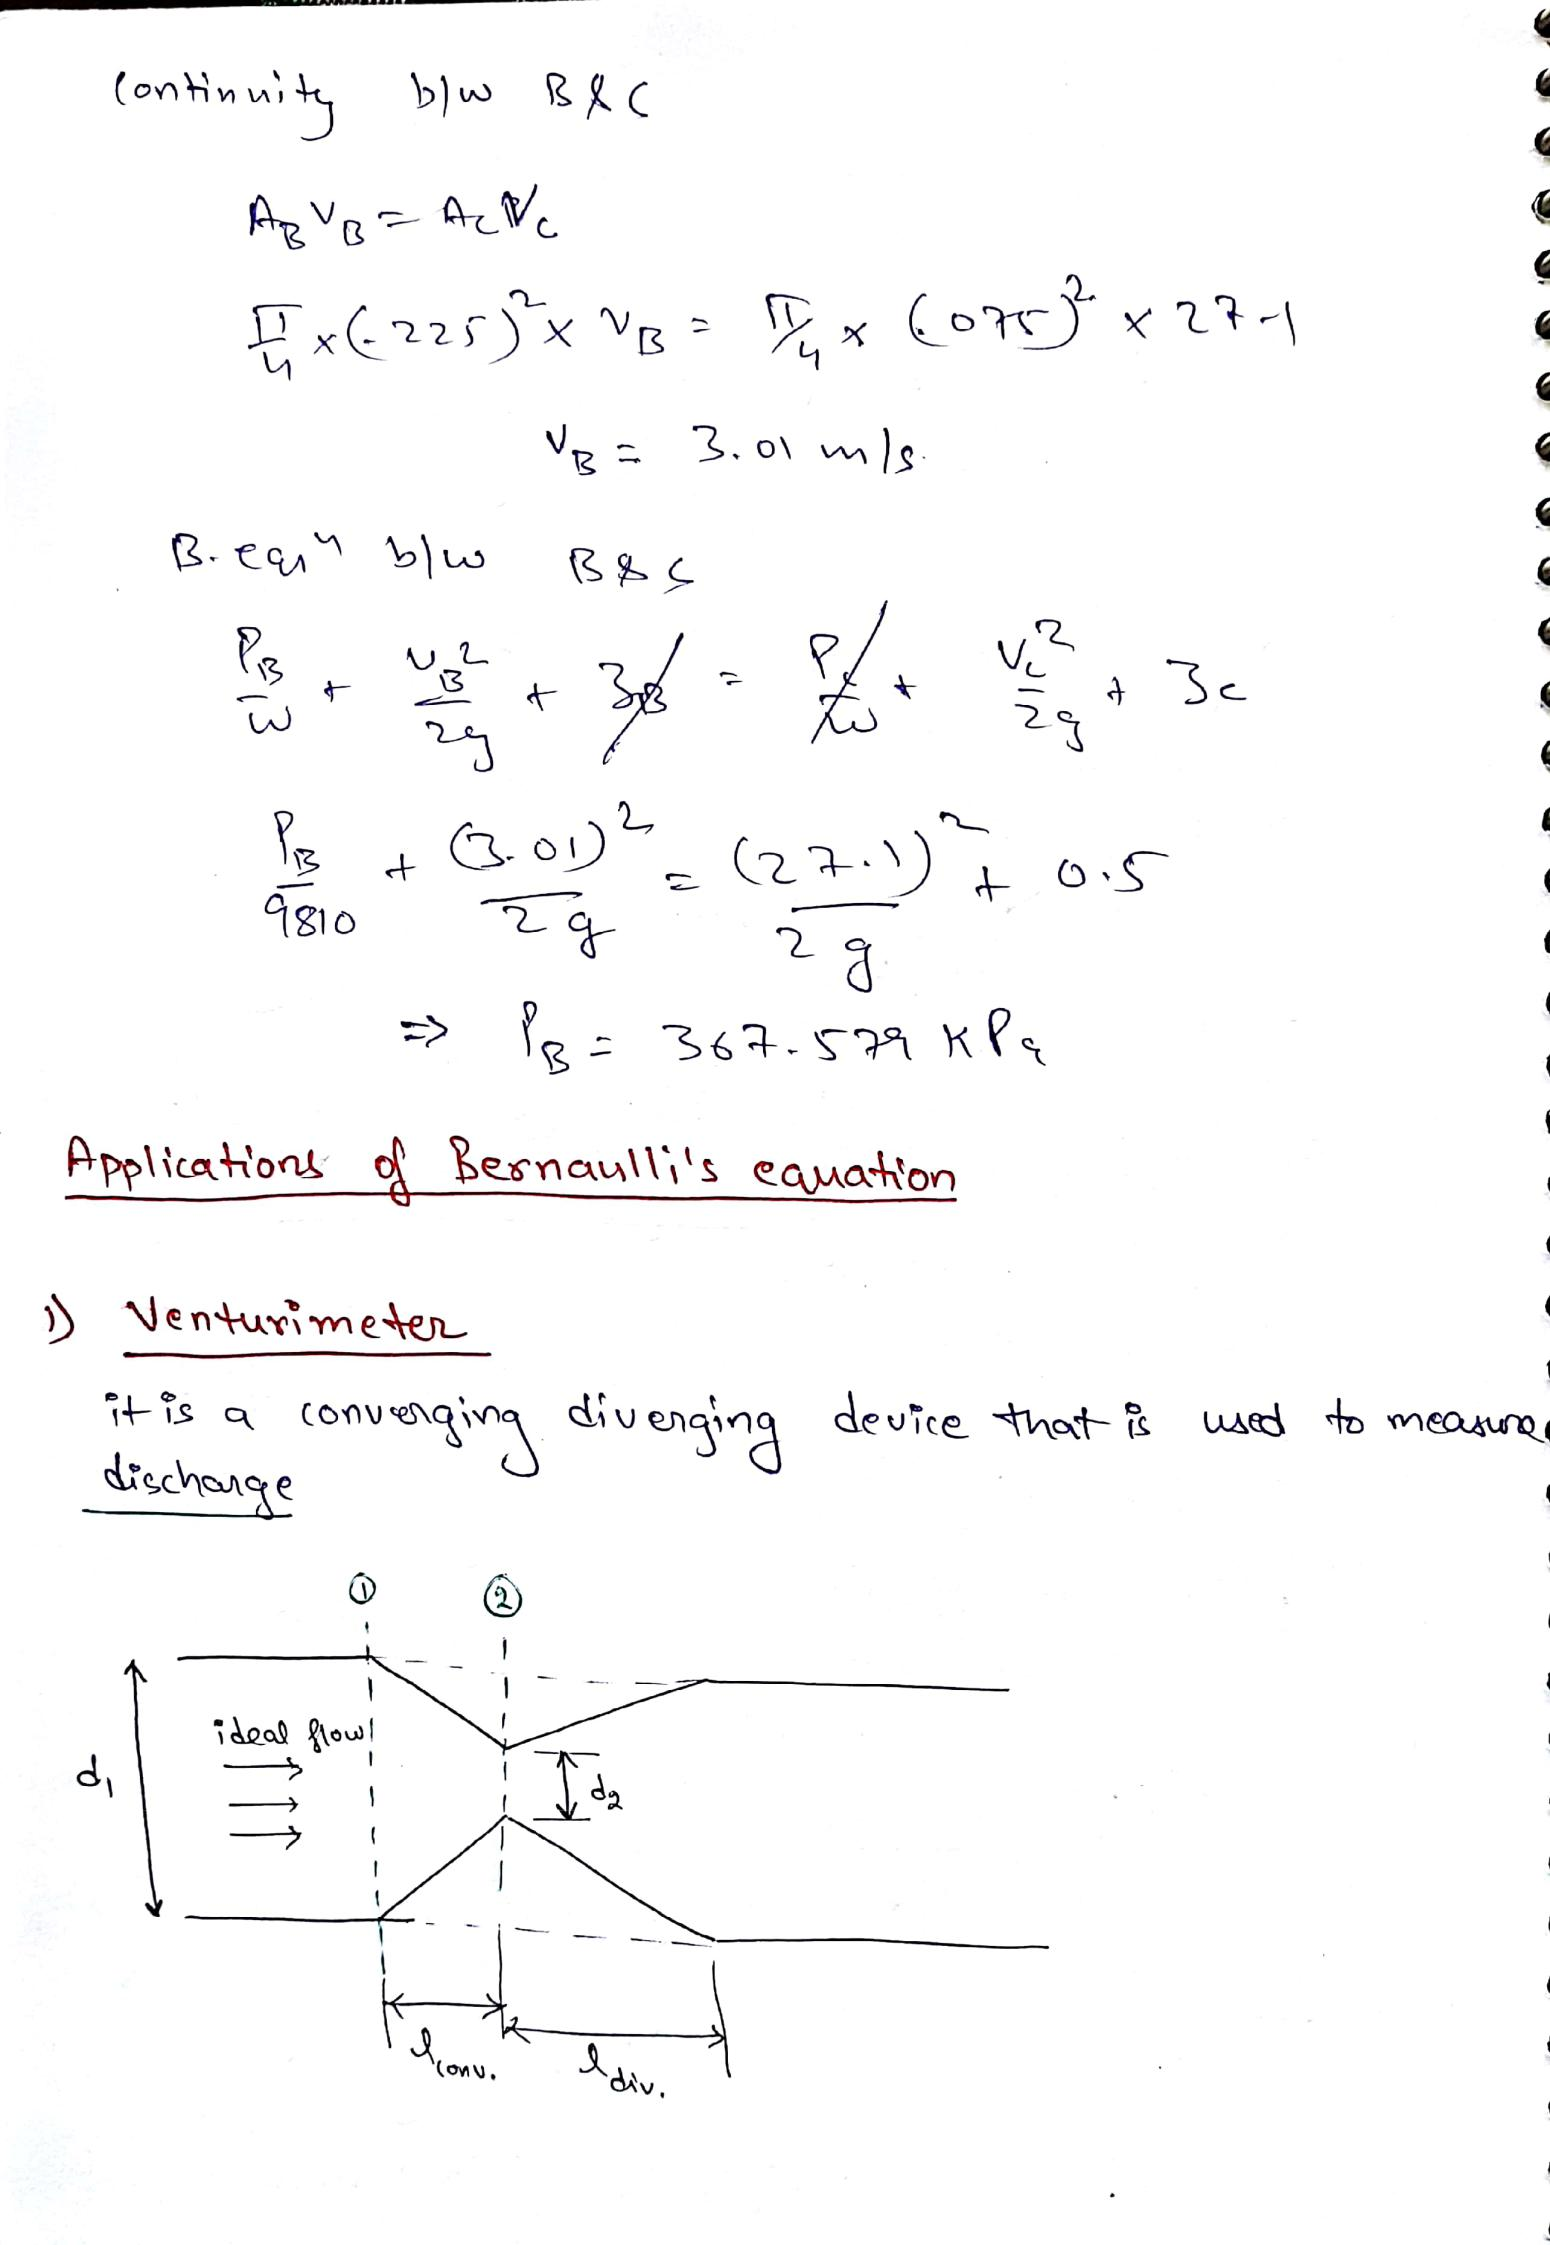 Continuity b/w B & C
A_B V_B = A_C V_C
π/4 × (.225)² × V_B = π/4 × (.075)² × 27.1
V_B = 3.01 m/s.
B. eqⁿ b/w B & C
P_B/w + V_B²/2g + z_B = P_C/w + V_C²/2g + z_C
P_B/9810 + (3.01)²/2g = (27.1)²/2g + 0.5
⇒ P_B = 367.579 KPa
Applications of Bernaulli's equation
1) Venturimeter
it is a converging diverging device that is used to measure
discharge
① ②
ideal flow
d₁
d₂
l conv.
l div.